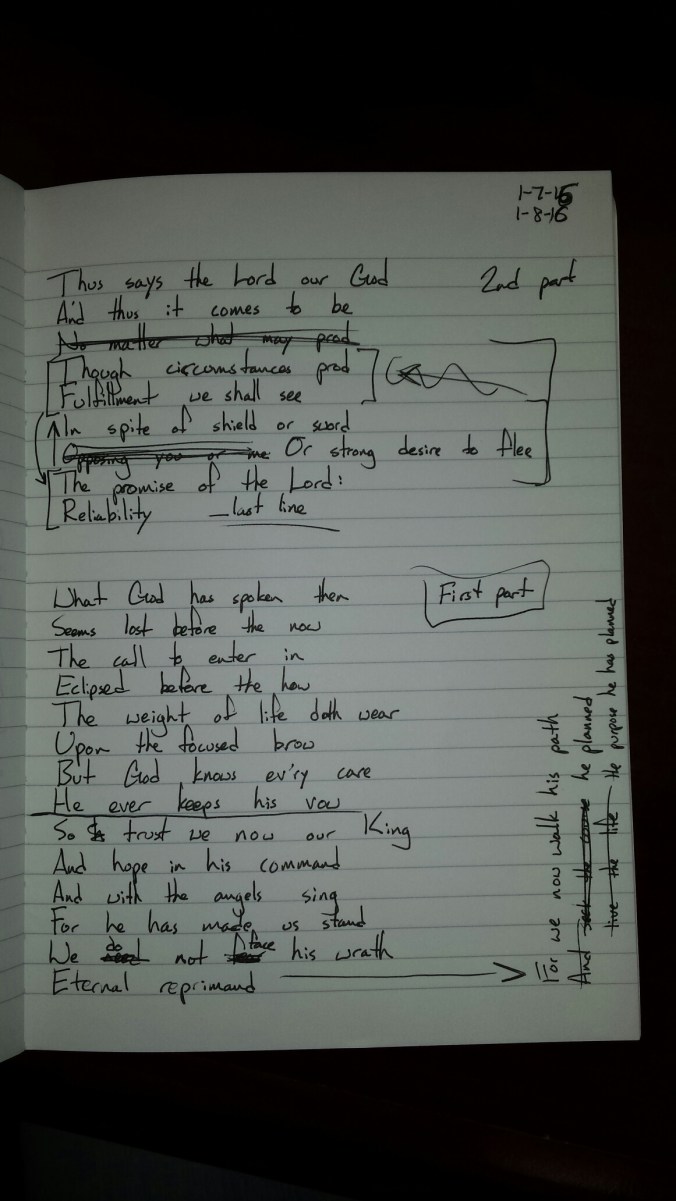 1-7-16
1-8-16
Thus says the Lord our God
2nd part
And thus it comes to be
No matter what may prod
Though circumstances prod
Fulfillment we shall see
In spite of shield or sword
Opposing you or me Or strong desire to flee
The promise of the Lord:
Reliability
last line
What God has spoken then
First part
Seems lost before the now
The call to enter in
Eclipsed before the how
The weight of life doth wear
Upon the focused brow
But God knows ev'ry care
He ever keeps his vow
So trust we now our King
And hope in his command
And with the angels sing
For he has made us stand
We need do not fear face his wrath
Eternal reprimand
For we now walk his path
And seek the course he planned
live the life the purpose he has planned